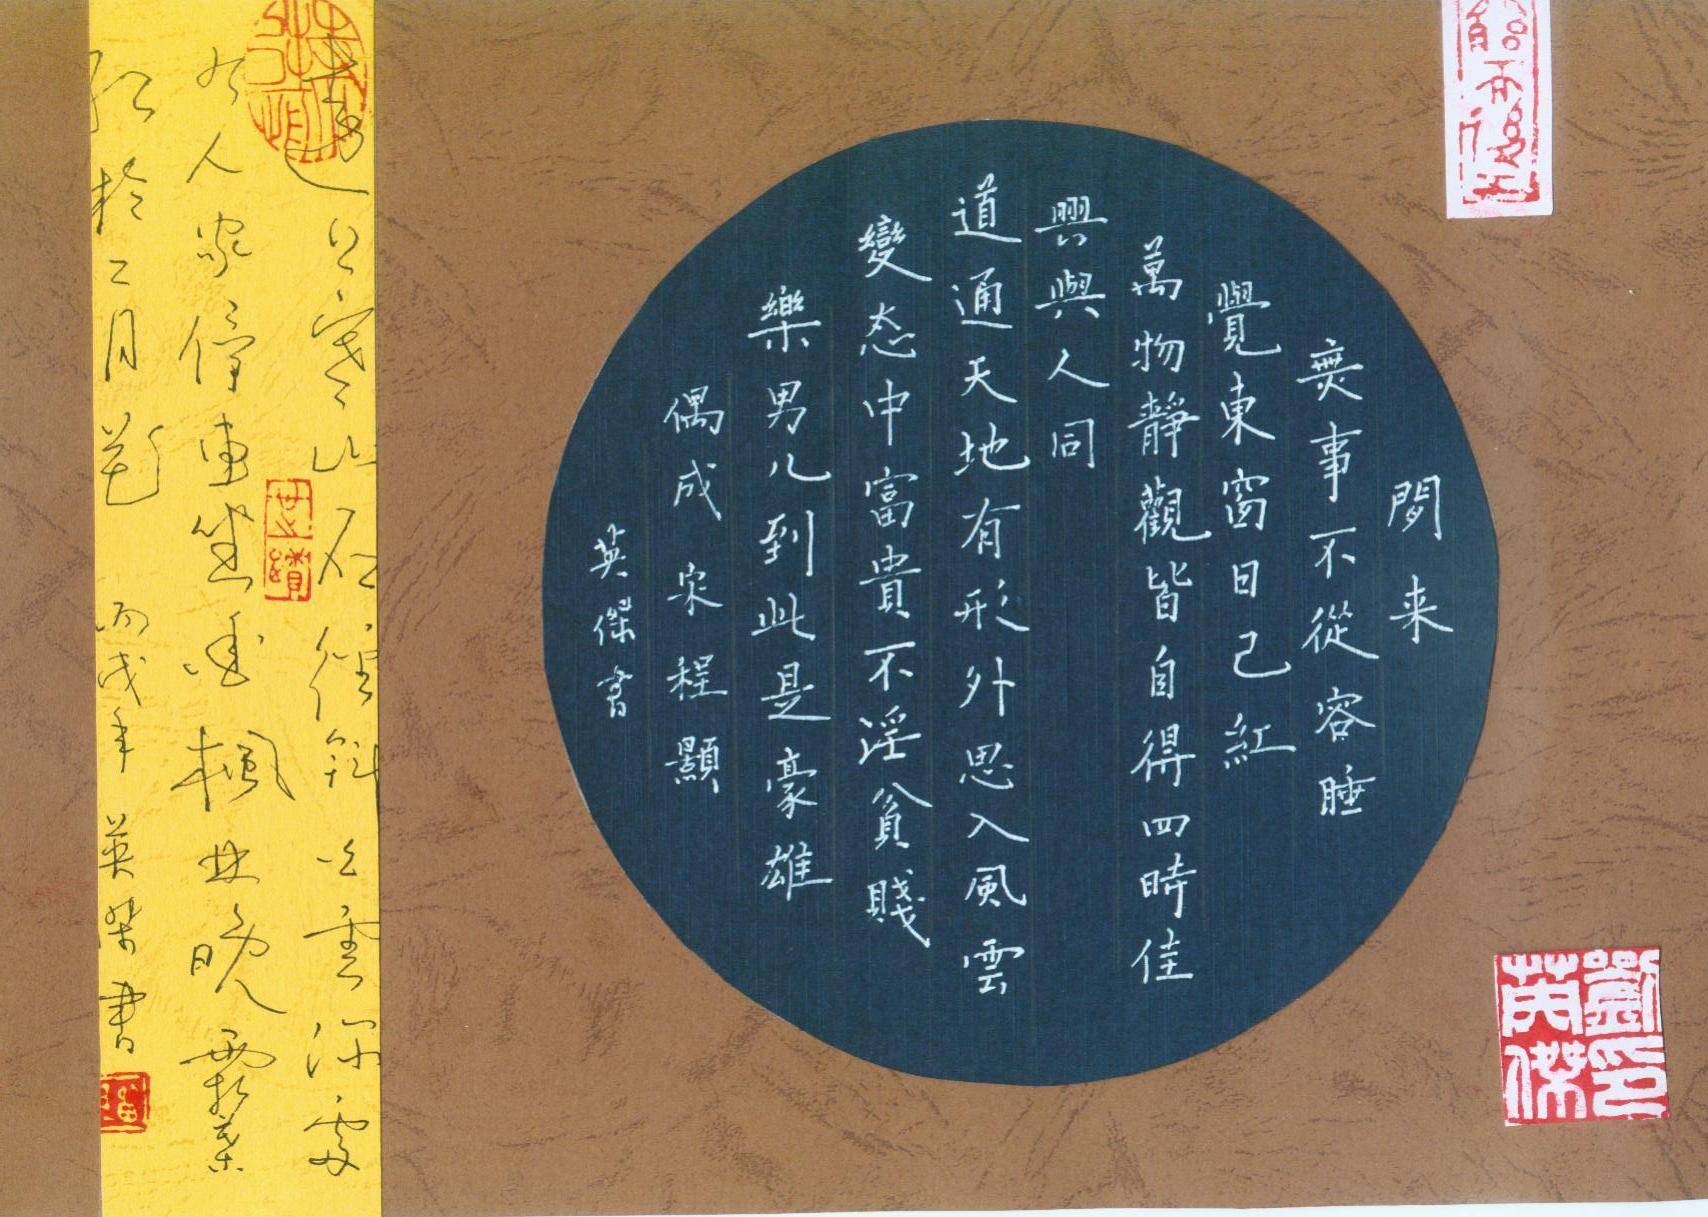 閒来
無事不從容睡
覺東窗日己紅
萬物靜觀皆自得四時佳
興與人同
道通天地有形外思入風雲
變态中富貴不淫貧賤
樂男儿到此是豪雄
偶成宋程顥
英傑書
劉印英傑
遠上寒山石徑斜白雲深處
有人家停車坐愛楓林晚霜葉
紅於二月花 丙戌年 英傑書